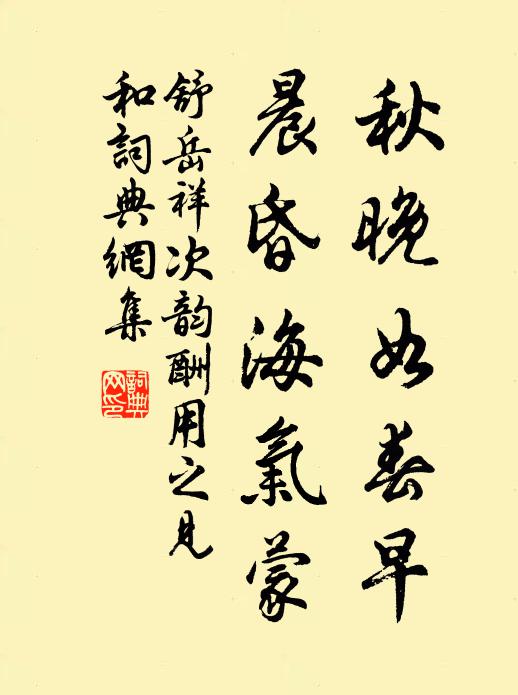 秋晚如春早
晨昏海氣蒙
舒岳祥次韵酬用之見
和詞典網集
詞典
网印